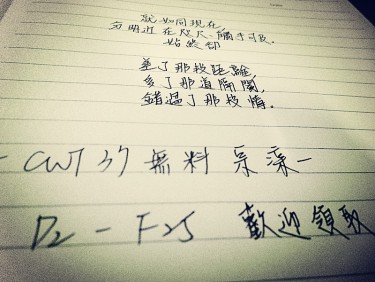 就如同現在,
分明近在咫尺、觸手可及.
始終卻
差了那段距離,
多了那道隔閡,
錯過了那段情.
- CWT37 無料 -
D2 - F25 歡迎領取